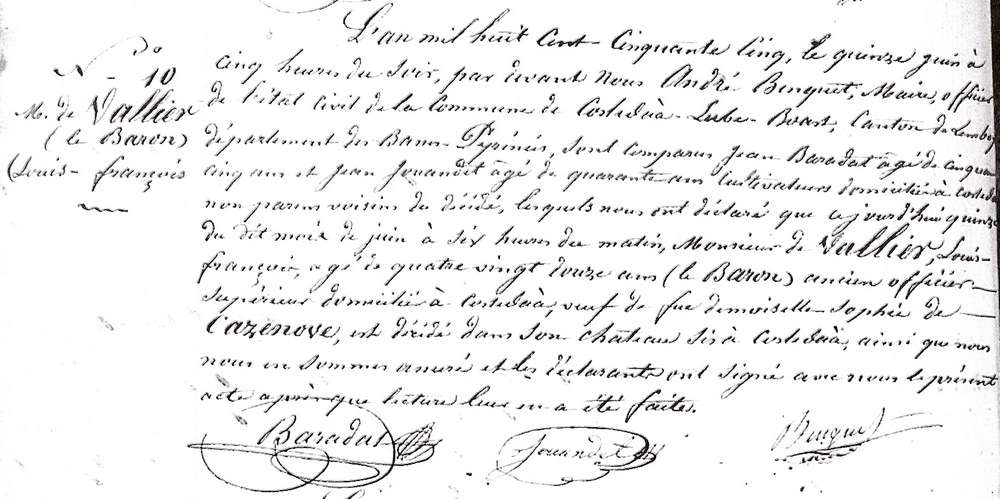 L'an mil huit Cent Cinquante Cinq, le quinze juin à
N.o 10
M. de Vallier
(le Baron)
(Louis-françois
cinq heures du soir, par devant nous André Binquet, Maire, officier
de l'état Civil de la Commune de Costedaà-Lube-Boast, Canton de Lembeye
département des Basses-Pyrénées, sont comparus Jean Baradat âgé de cinquante
cinq ans et Jean Jouandet âgé de quarante ans Cultivateurs domiciliés à
non parens voisins du décédé, lesquels nous ont déclaré que cejourd'hui quinze
du dit mois de juin à six heures du matin, Monsieur de Vallier, Louis-
françois, agé de quatre vingt douze ans (le Baron) ancien officier
Supérieur domicilié à Costedaà, veuf de fue demoiselle Sophie de
Cazenove, est décédé dans son chateau sis à Costedaà, ainsi que nous
nous en sommes assuré et les déclarants ont signé avec nous le présent
acte après que lecture leur en a été faite.
Baradat Jouandet Binquet